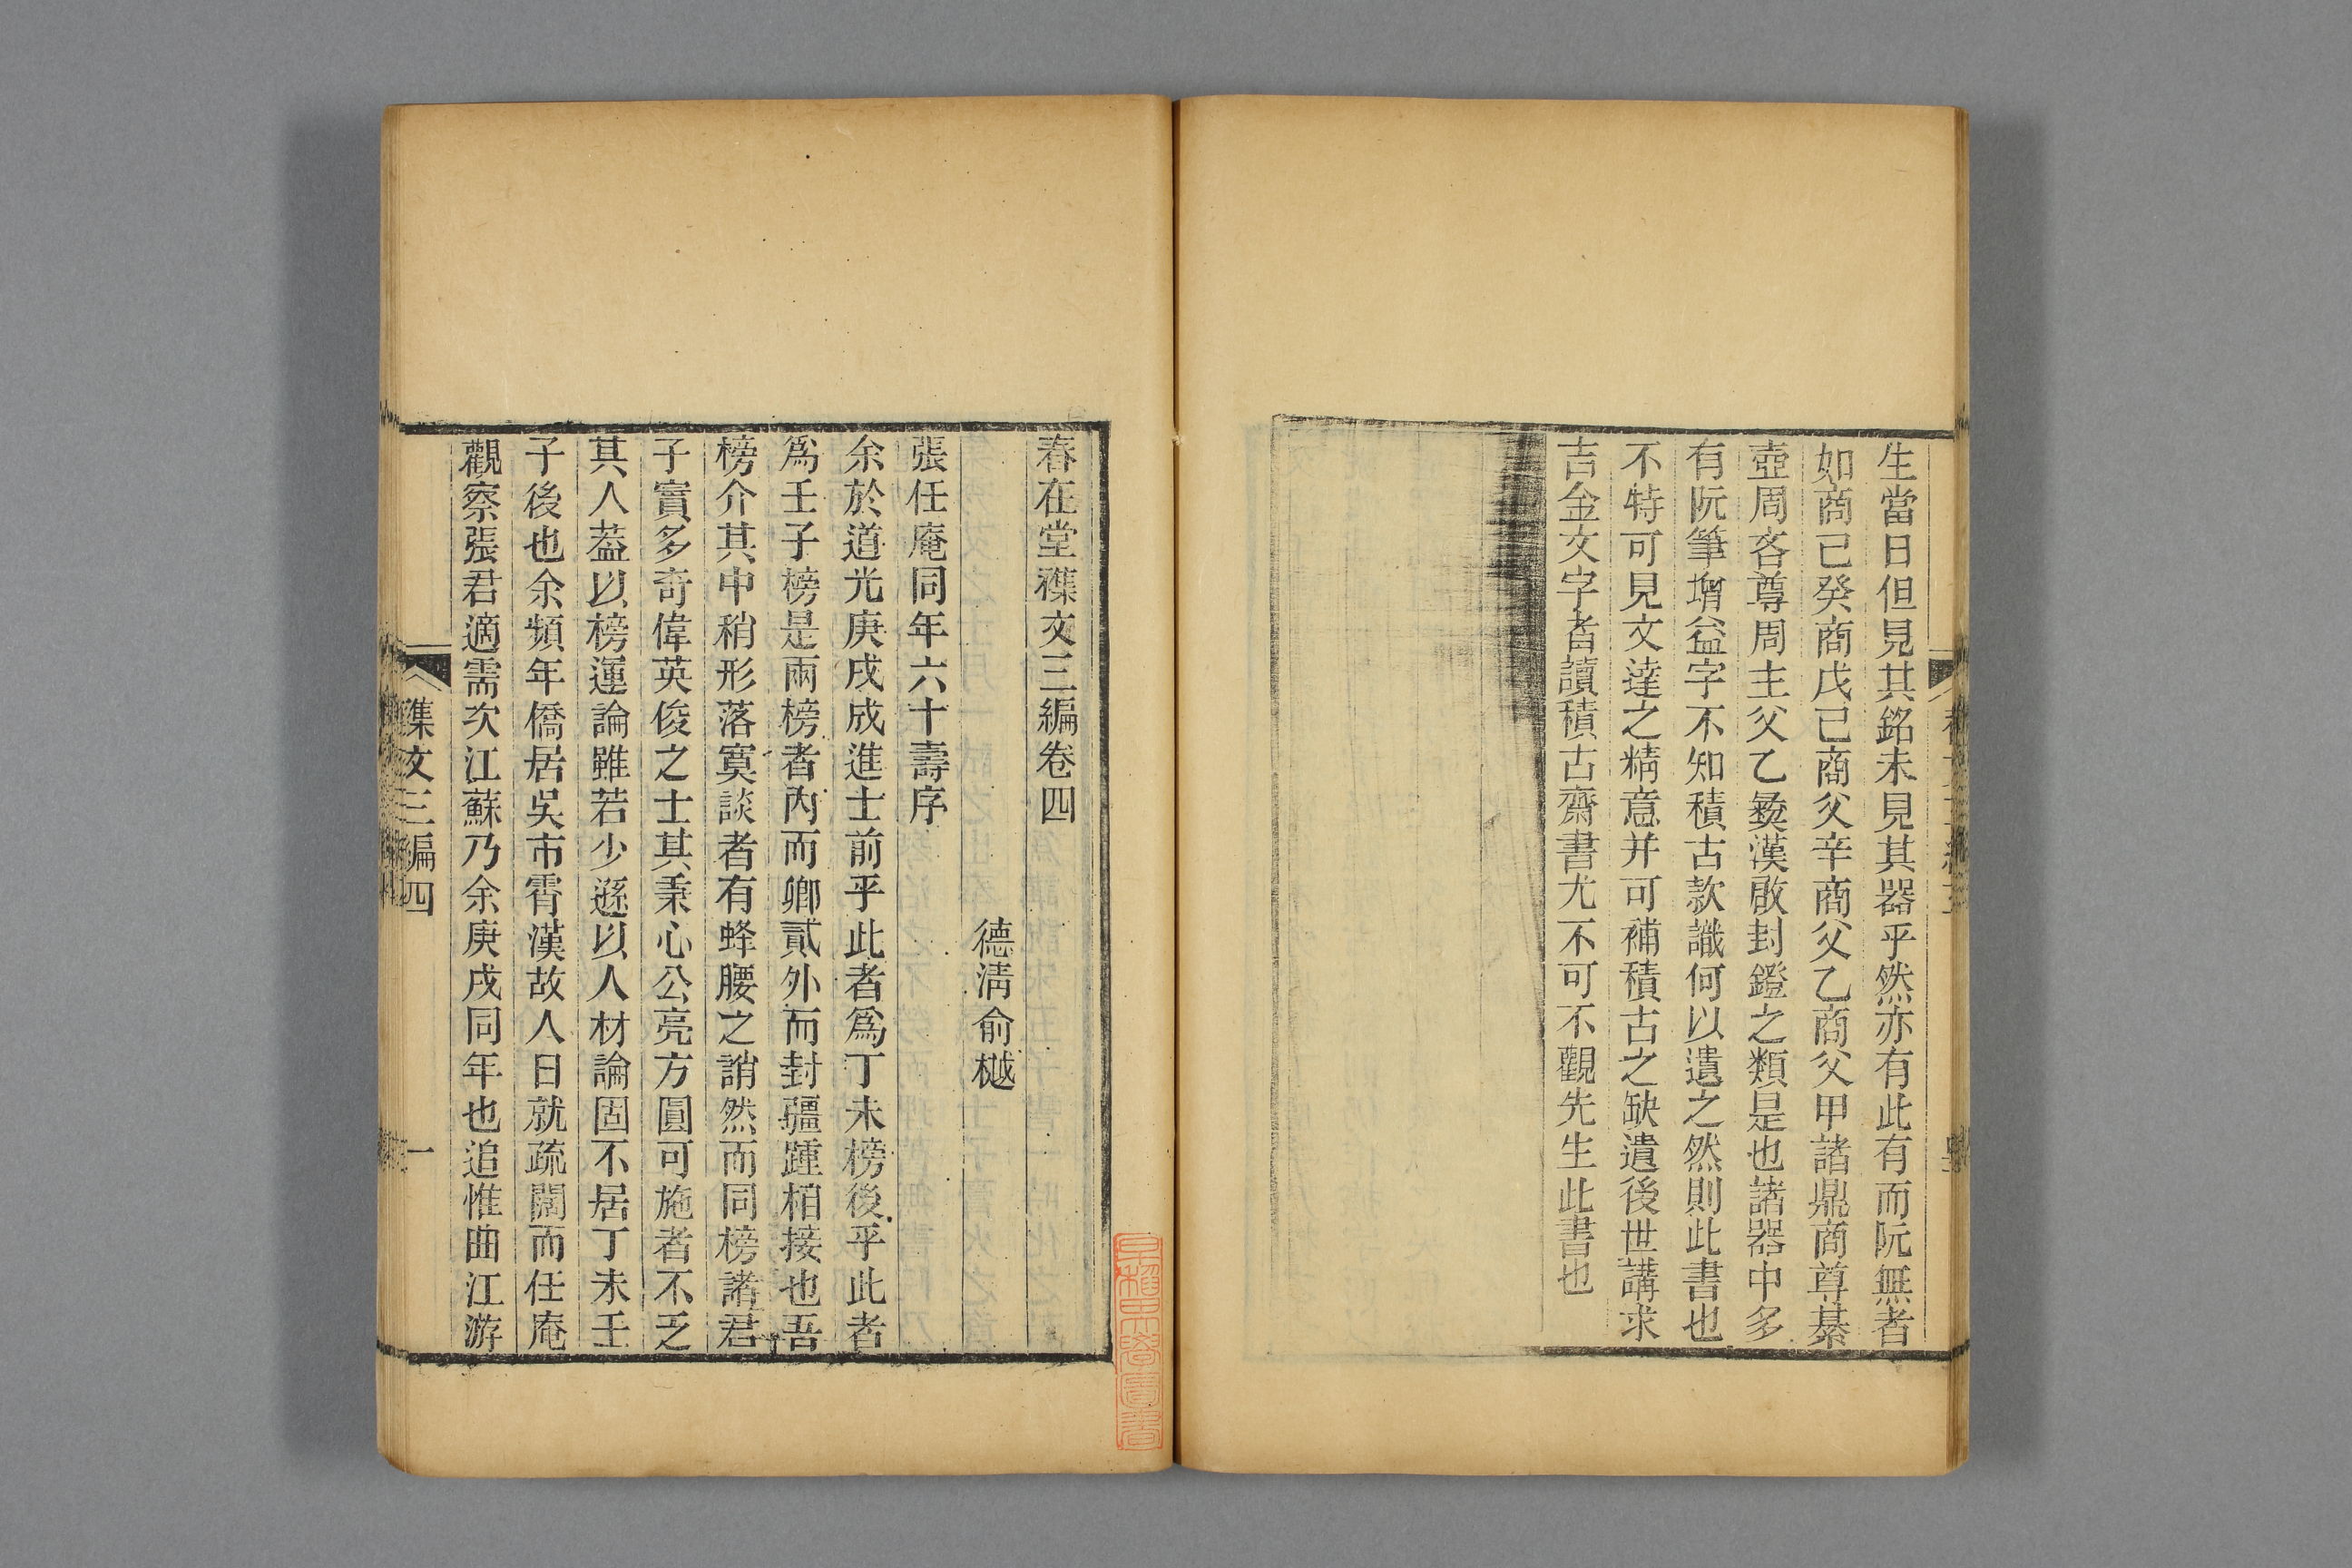 生當日但見其銘未見其器乎然亦有此有而阮無者
如商己癸商戊己商父辛商父乙商父甲諸鼎商尊綦
壺周客尊周主父乙彜漢啟封鐙之類是也諸器中多
有阮筆增益字不知積古款識何以遺之然則此書也
不特可見文達之精意并可補積古之缺遺後世講求
吉金文字者讀積古齋書尤不可不觀先生此書也
春在堂襍文三編卷四
德淸俞樾
張任庵同年六十壽序
余於道光庚戌成進士前乎此者爲丁未榜後乎此者
爲壬子榜是兩榜者內而卿貳外而封疆踵相接也吾
榜介其中稍形落寞談者有蜂腰之誚然而同榜諸君
子實多奇偉英俊之士其秉心公亮方圓可施者不乏
其人葢以榜運論雖若少遜以人材論固不居丁未壬
子後也余頻年僑居吳市霄漢故人日就疏闊而任庵
觀察張君適需次江蘇乃余庚戌同年也追惟曲江游
襍文三編四
一